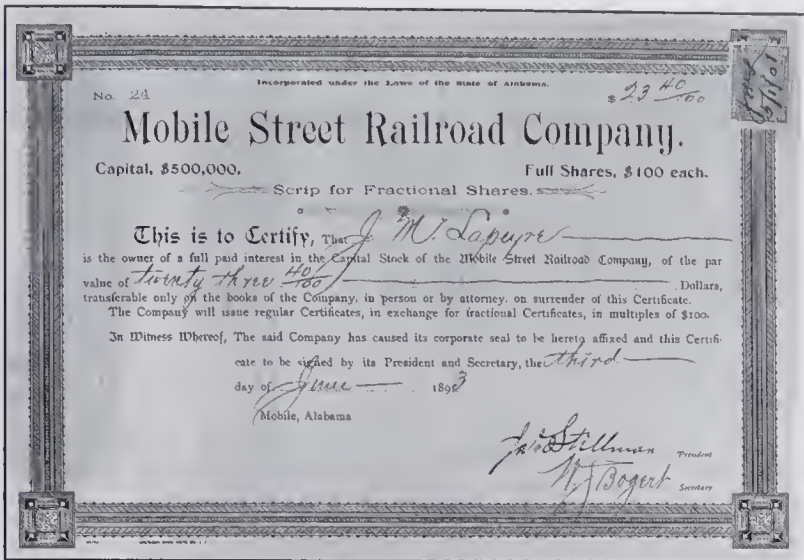 Incorporated under the Laws of the State of Alabama.
No. 24
$23 40/100
Mobile Street Railroad Company.
Capital, $500,000.
Full Shares, $100 each.
Scrip for Fractional Shares.
This is to Certify, That J. M. Lapeyre
is the owner of a full paid interest in the Capital Stock of the Mobile Street Railroad Company, of the par
value of twenty three 40/100 Dollars,
transferable only on the books of the Company, in person or by attorney, on surrender of this Certificate.
The Company will issue regular Certificates, in exchange for fractional Certificates, in multiples of $100.
In Witness Whereof, The said Company has caused its corporate seal to be hereto affixed and this Certifi-
cate to be signed by its President and Secretary, the third
day of June 1893
Mobile, Alabama
Stillman President
W J Bogert Secretary